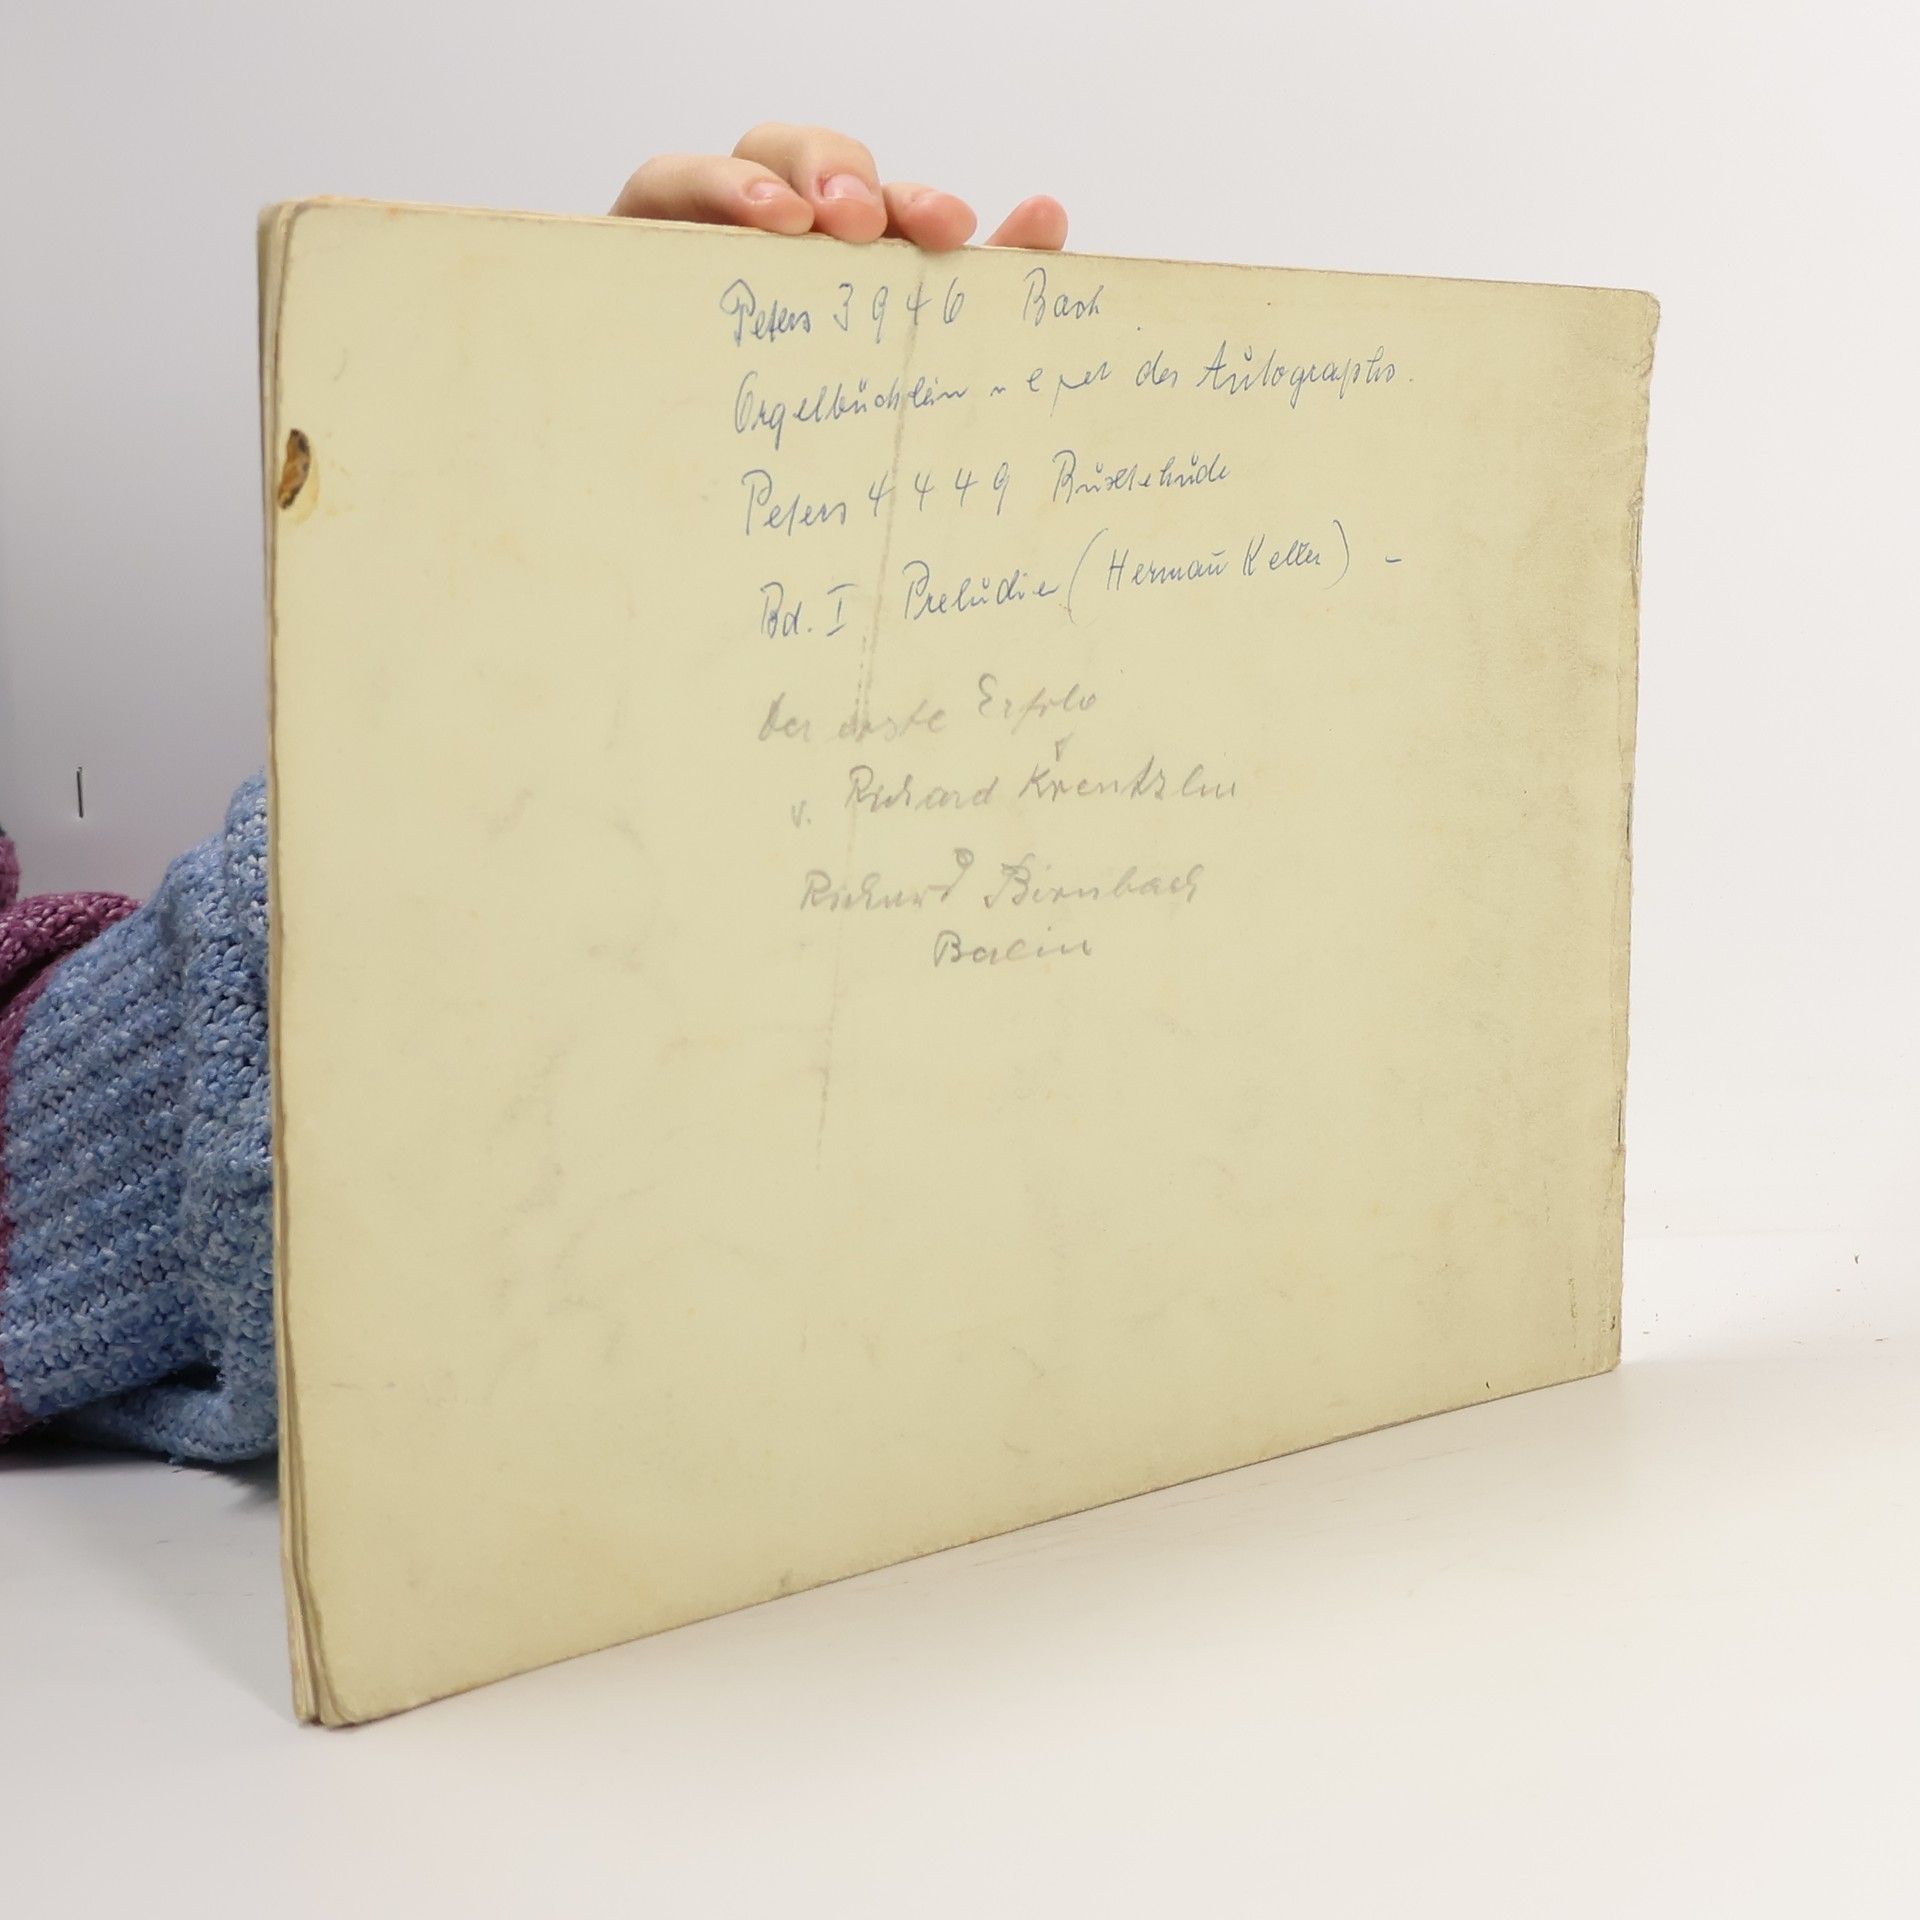 Peters 3946 Bach
Orgelbüchlein des Autographs.
Peters 4449 Buxtehude
Bd. I Preludien (Herman Keller) -
Der erste Erfolg
v. Richard Krentzlin
Richard Birnbach
Berlin